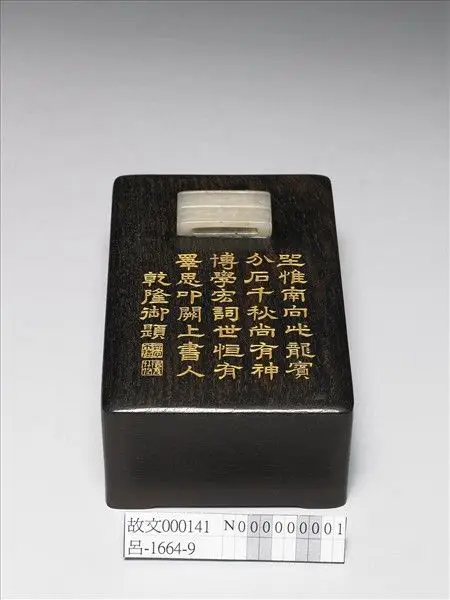 坐惟南向此龍賓
介石千秋尚有神
博學宏詞世恒有
思叩闕上書人
乾隆御題
故文000141 N000000001
呂-1664-9